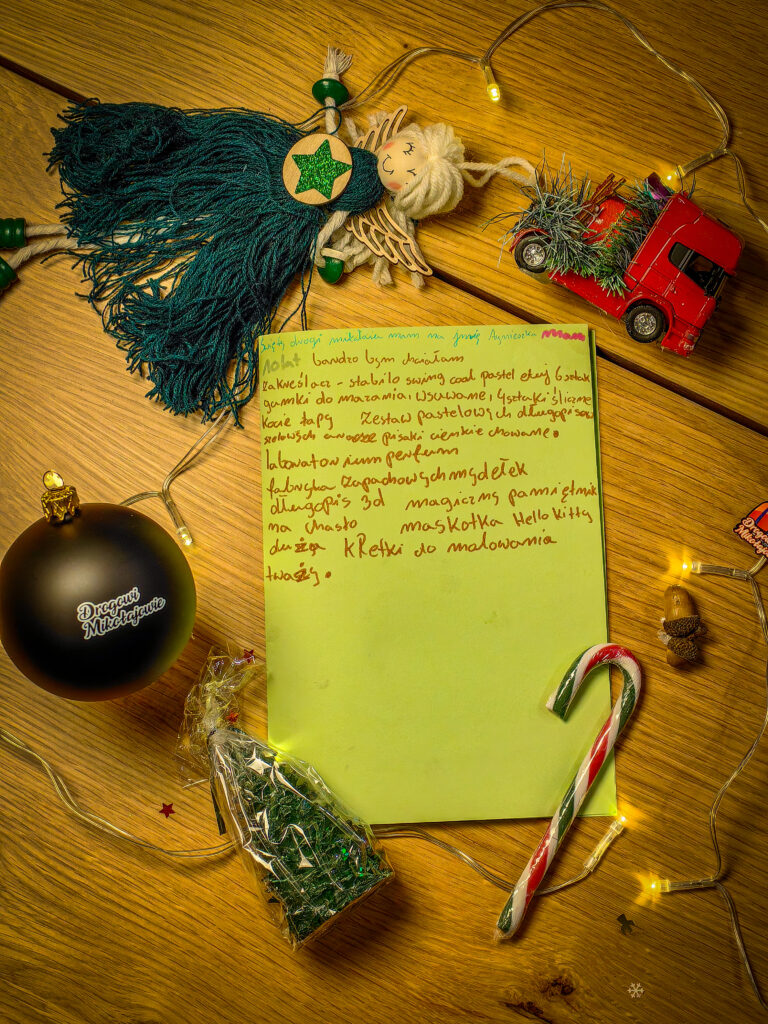 Święty drogi mikołaju mam na imię Agnieszka mam
10 lat bardzo bym chciałam
zakreślacz - stabilo swing cool pastel etuj 6 sztuk
gumki do mazania wsuwane, 4 sztuki śliczne
kocie łapy Zestaw pastelowych długopisów
żelowych pisaki cienkie chowane.
laboratorium perfum
fabryka zapachowych mydełek
długopis 3d magiczny pamiętnik
na hasło maskotka Hello kitty
duża kRetki do malowania
tważy.
Drogowi
Mikołajowie
Drogowi
Mikołajowie